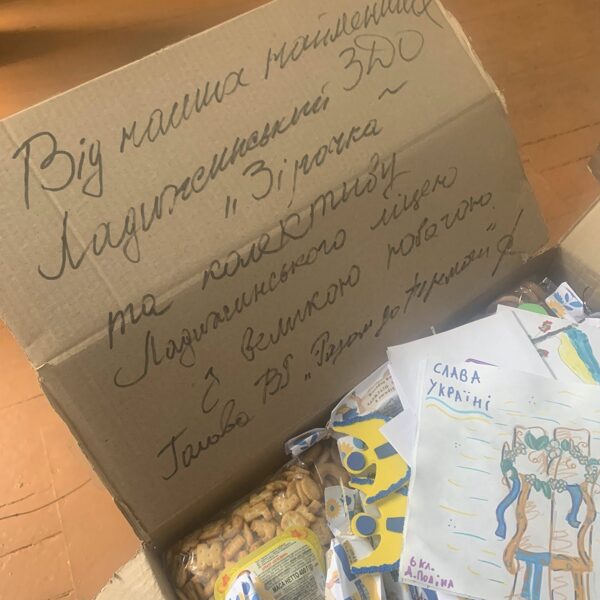 Від наших найменших
Ладижинський ЗДО
"Зірочка"
та колективу
Ладижинського ліцею
З великою повагою
Голова БФ "Разом до перемоги"
СЛАВА
УКРАЇНІ
6 кл.
МАСА НЕТТО 400 г